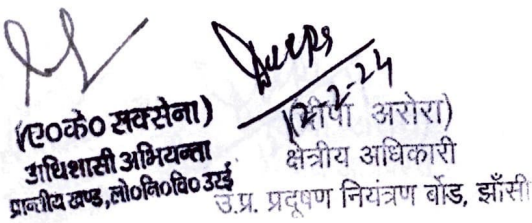 (ए०के० सक्सेना)
अधिशासी अभियन्ता
प्रान्तीय खण्ड, लो०नि०वि० उरई
(दीपा अरोरा)
क्षेत्रीय अधिकारी
उ.प्र. प्रदूषण नियंत्रण बोर्ड, झाँसी